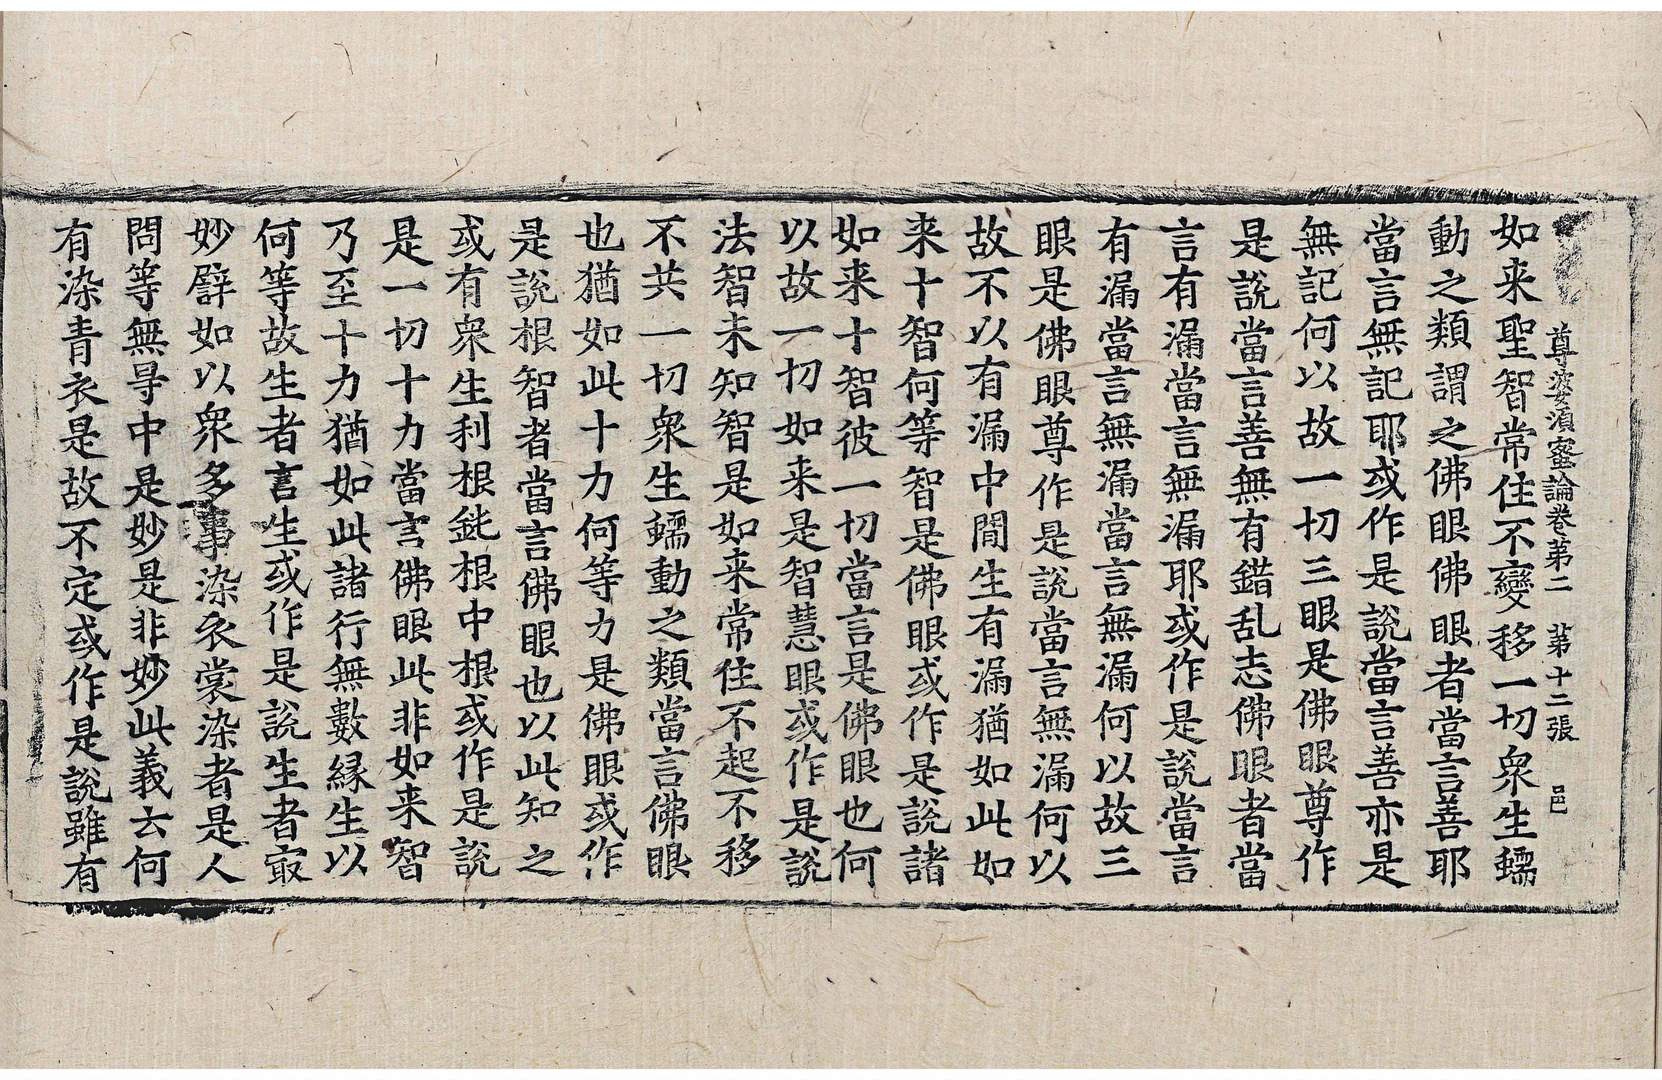 尊婆須蜜論卷第二　第十二張　邑
如来聖智常住不變移一切衆生蠕
動之類謂之佛眼佛眼者當言善耶
當言無記耶或作是説當言善亦是
無記何以故一切三眼是佛眼尊作
是説當言善無有錯乱志佛眼者當
言有漏當言無漏耶或作是説當言
有漏當言無漏當言無漏何以故三
眼是佛眼尊作是説當言無漏何以
故不以有漏中間生有漏猶如此如
来十智何等智是佛眼或作是説諸
如来十智彼一切當言是佛眼也何
以故一切如来是智慧眼或作是説
法智未知智是如来常住不起不移
不共一切衆生蠕動之類當言佛眼
也猶如此十力何等力是佛眼或作
是説根智者當言佛眼也以此知之
或有衆生利根鈍根中根或作是説
是一切十力當言佛眼此非如来智
乃至十力猶如此諸行無數縁生以
何等故生者言生或作是説生者㝡
妙譬如以衆多事染衣裳染者是人
問等無㝵中是妙是非妙此義云何
有染青衣是故不定或作是説雖有